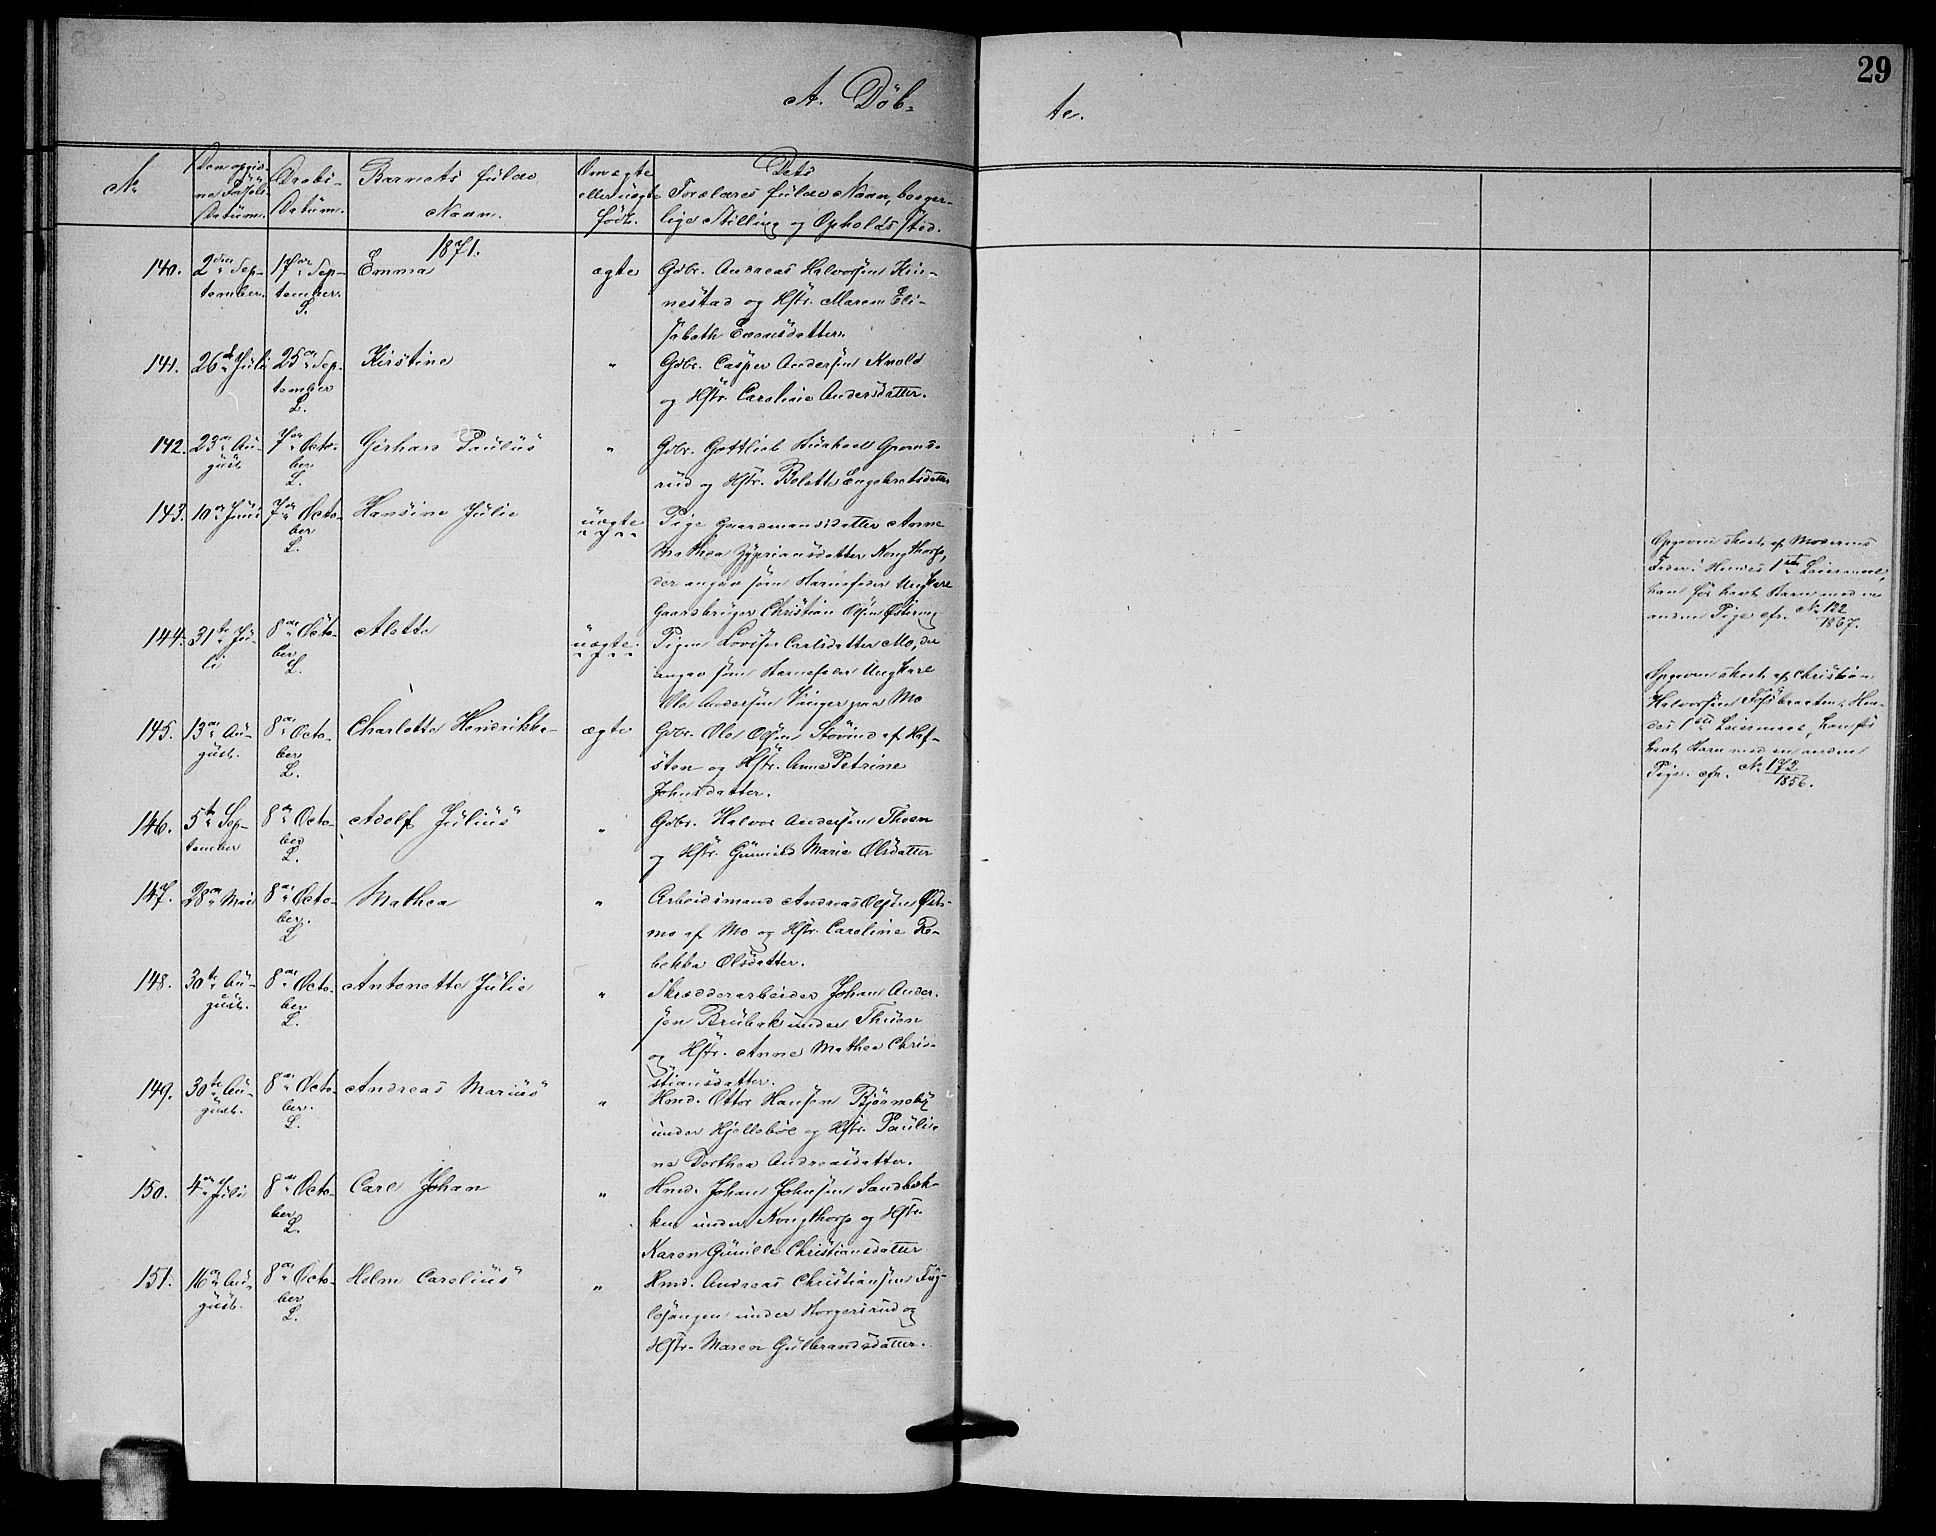 29
A. Döb-
te.
No
Den opgiv-
ne Födsels
Datum.
Daabs-
Datum.
Barnets fulde
Navn.
Om ægte
eller uægte
født.
Dets
Forældres fulde Navn, borger-
lige Stilling og Opholdssted.
1871.
140.
2den Sep-
tember.
17de Sep-
tember.
S.
Emma
ægte
Gbr. Andreas Halvorsen Kin-
nestad og Hstr. Maren Eli-
sabeth Evensdatter.
141.
26de Juli
25de Sep-
tember
L.
Kirstine
"
Gbr. Casper Andersen Knold
og Hstr. Caroline Andersdatter.
142.
23de Au-
gust
7de Octo-
ber
L.
Gerhard Paulus
"
Gbr. Gottlieb
rud og Hstr. Bolette Engebretsdatter
143.
10de Juni
7de Octo-
ber
L.
Hansine Julie
uægte
Pige Gaardmandsdatter Anne
Mathea Zypriansdatter Kongthorp,
der angav som Barnefader Ungkarl
Gaardbruger Christian Olsen Østeng
Opgiven skeet af Moderens
Fader. Hendes 1ste Leiermaal,
han før havt Barn med en
anden Pige cfr. No 122
1867.
144.
31te Ju-
li
8de Octo-
ber
L.
Alette
uægte.
Pigen Lovise Carlsdatter Mo, der
angav som Barnefader Ungkarl
Ole Andersen Vinger paa Mo
Opgiven skeet af Christian
Halvorsen Fossbraaten. Hen-
des 1ste Leiermaal, han før
havt Barn med en anden
Pige. cfr. No 172
1856.
145.
13de Au-
gust.
8de Octo-
ber
L.
Charlotte Hendrikke
ægte
Gbr. Ole Olsen Støvind af Haf-
sten og Hstr. Anne Petrine
Johnsdatter.
146.
5te Sep-
tember
8de Octo-
ber
L.
Adolf Julius
"
Gbr. Halvor Andersen Thoen
og Hstr. Gunild Marie Olsdatter
147.
28de Mai
8de Octo-
ber.
L
Mathea
"
Arbeidsmand Andreas Olsen Øst-
mo af Mo og Hstr. Caroline Re-
bekka Olsdatter.
148.
30te Au-
gust.
8de Octo-
ber
L.
Antonette Julie
"
Skrædderarbeider Johan Ander-
sen Brubak under Thuen
og Hstr. Anne Mathea Chris-
tiansdatter.
149.
30te Au-
gust.
8de Octo-
ber.
L.
Andreas Marius
"
Hmd. Otto Hansen Bjørneby
under Hjellebøl og Hstr. Pauli-
ne Dorthea Andreasdatter.
150.
4de Juli
8de Octo-
ber
L.
Carl Johan
"
Hmd. Johan Johnsen Sandbæk-
ken under Kongthorp og Hstr.
Karen Gunille Christiansdatter
151.
16de Au-
gust.
8de Octo-
ber
L.
Holm Carolius
"
Hmd. Andreas Christiansen Fug-
lesangen under Borgersrud og
Hstr. Maren Gulbrandsdatter.